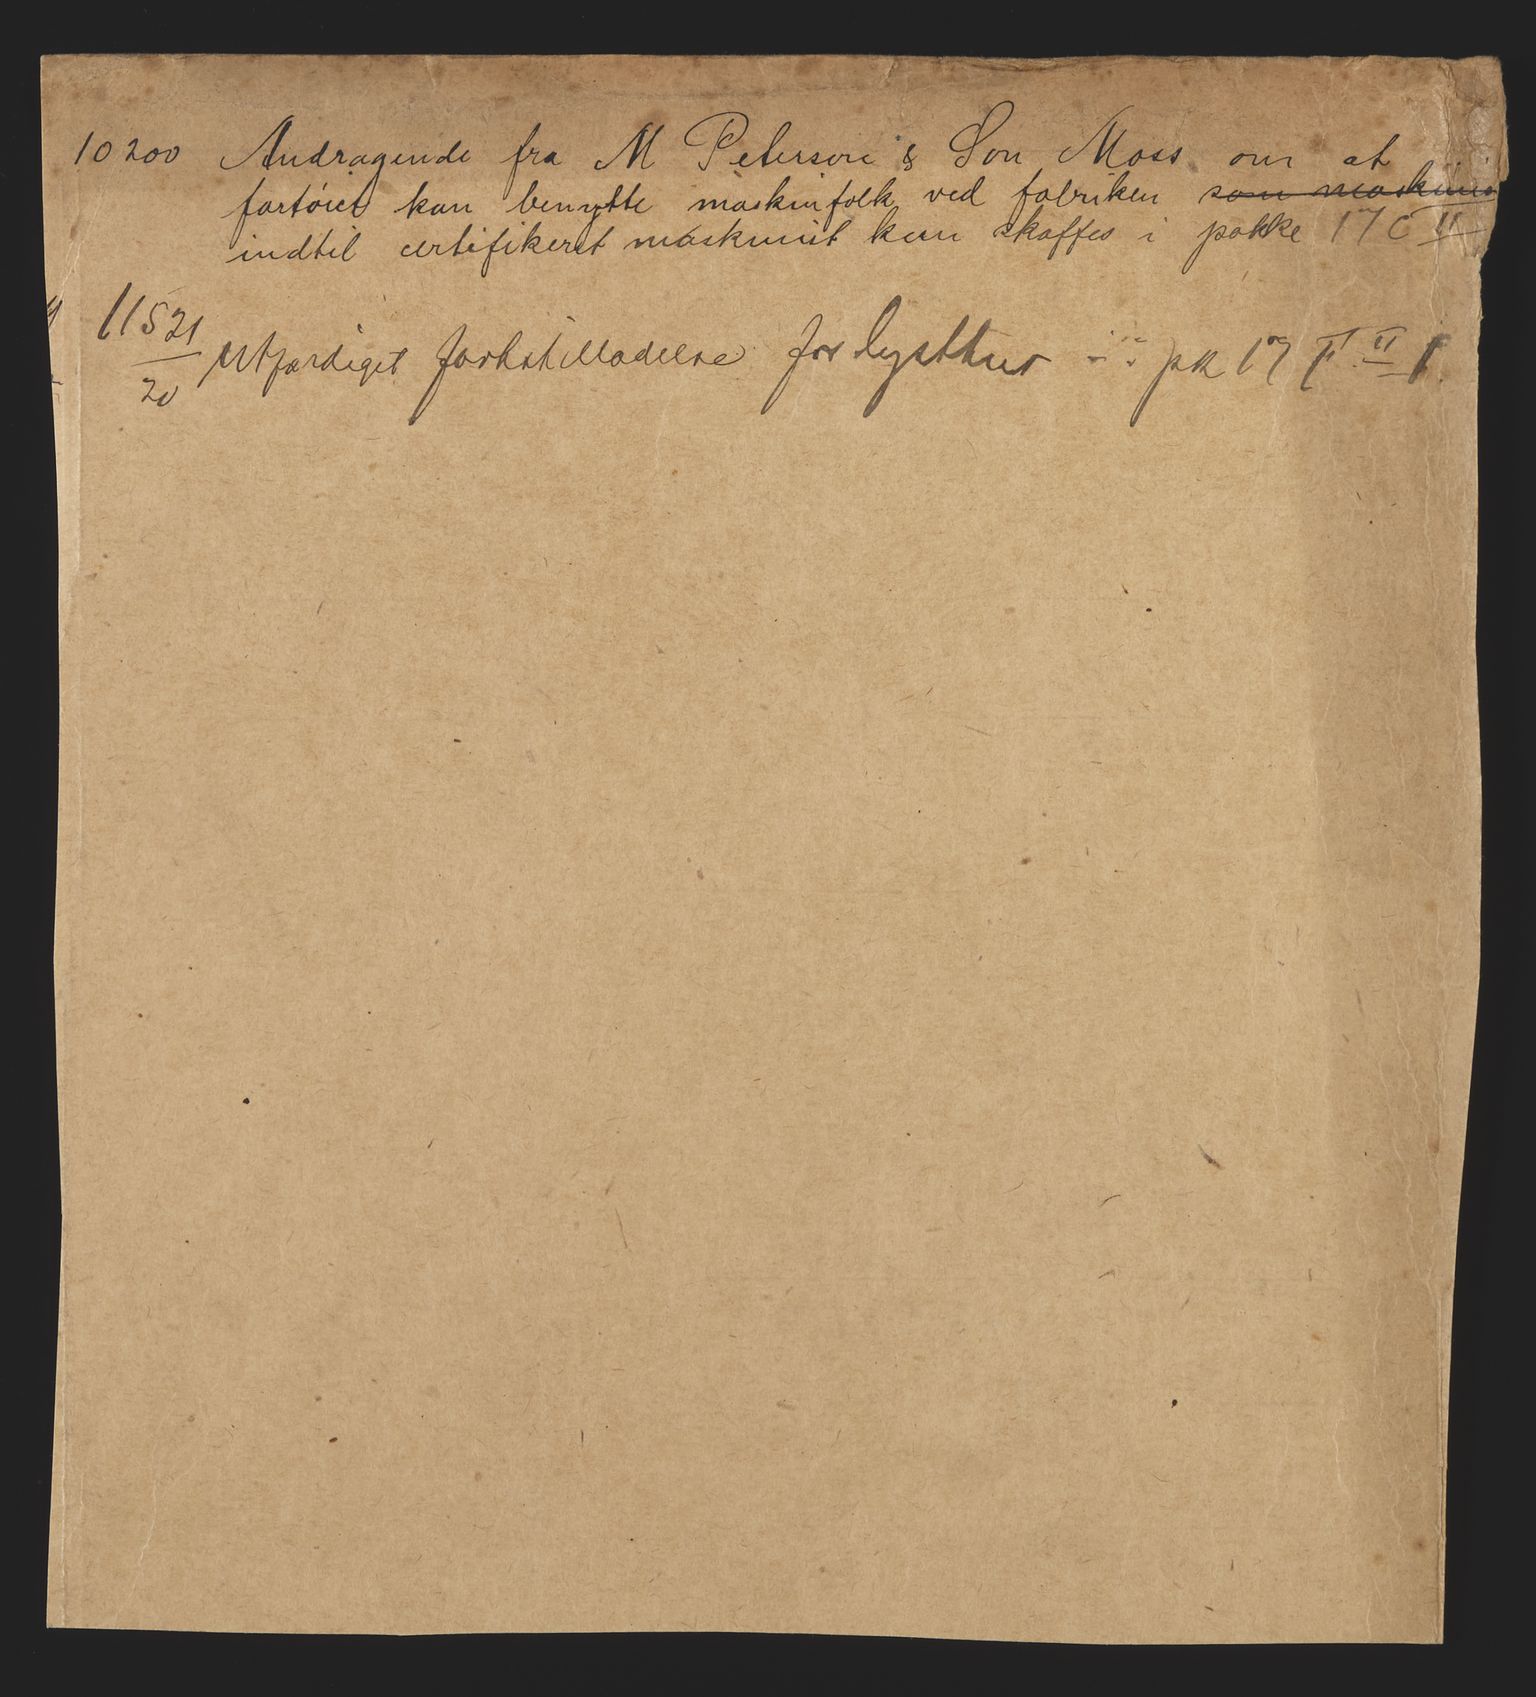 10200 Andragende fra M Peterson & Søn Moss om at
fartøiet kan benytte maskinfolk ved fabriken som maskinis
indtil certifikeret maskinist kan skaffes i pakke 17 C II
11521/20 Utfærdiget fartstilladelse for lysttur i pk 17 F II